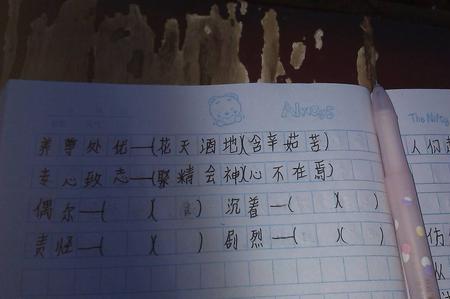 Always
The Nifty
养尊处优—(花天酒地)(含辛茹苦)
专心致志—(聚精会神)(心不在焉)
偶尔—( )( ) 沉着—( )( )
责怪—( )( ) 剧烈—( )( )
人们
仿
从